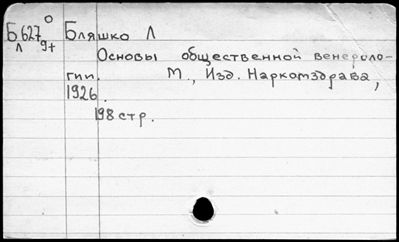 Б627 О Бляшко Л
Л 9+
Основы общественной венероло-
гии. М., Изд. Наркомздрава,
1926.
198 стр.